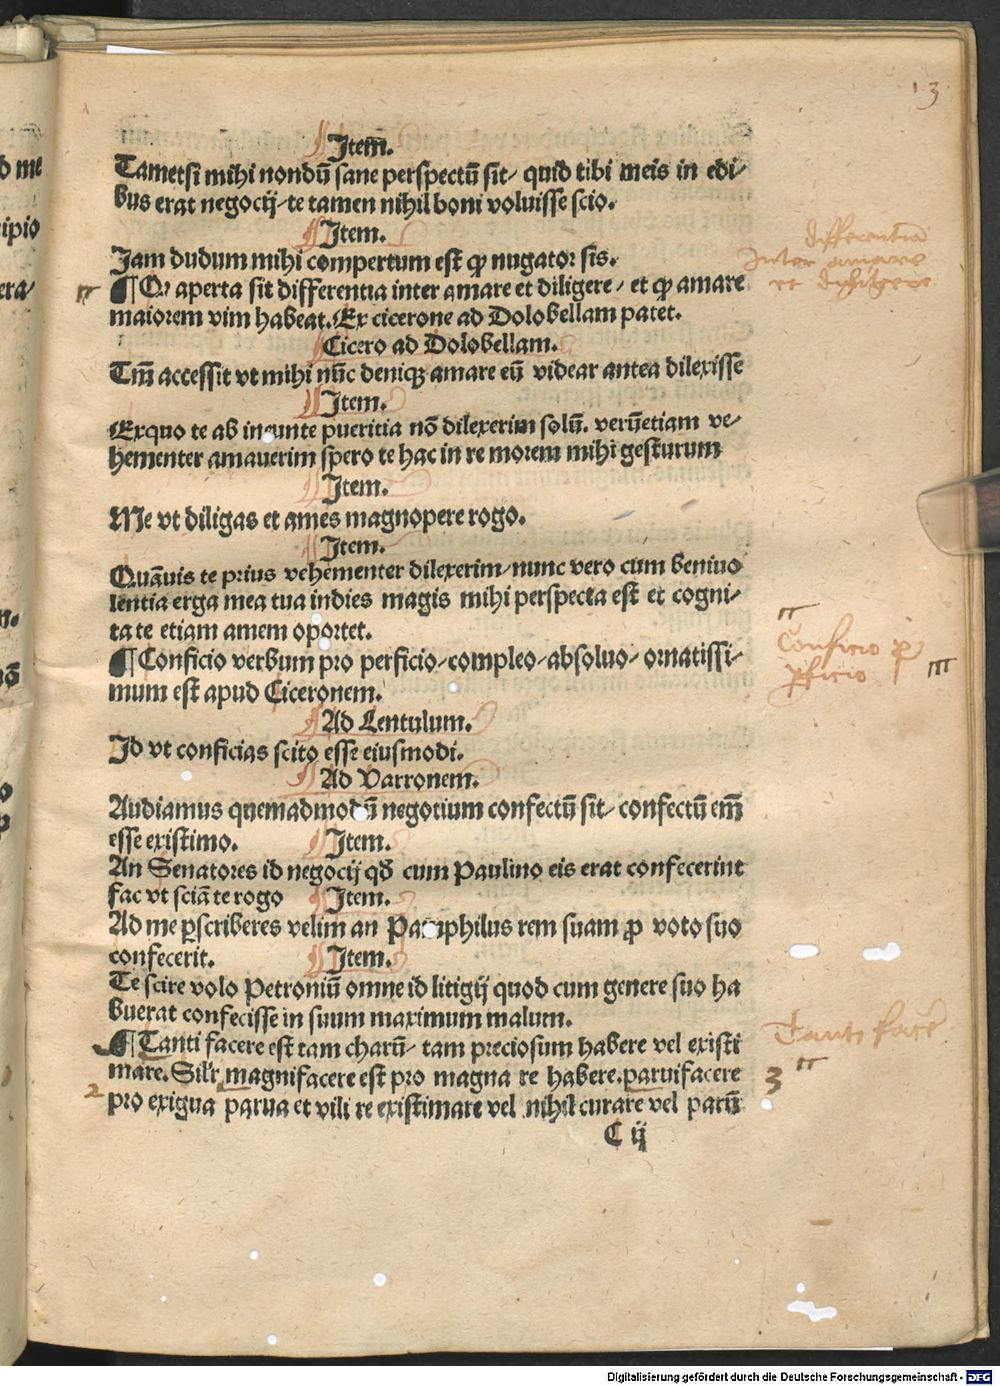 13
Item.
Tametsi mihi nondū sane perspectū sit/ quid tibi meis in edi/
bus erat negocij/te tamen nihil boni voluisse scio.
Item.
Jam dudum mihi compertum est ꝙ nugator sis.
¶ Q aperta sit differentia inter amare et diligere/ et ꝙ amare
maiorem vim habeat. Ex cicerone ad Dolobellam patet.
Cicero ad Dolobellam.
Tm̄ accessit vt mihi nūc deniqꝫ amare eū videar antea dilexisse
Item.
Exquo te ab ineunte pueritia nō dilexerim solū. verūetiam ve/
hementer amauerim spero te hac in re morem mihi gesturum
Item.
Me vt diligas et ames magnopere rogo.
Item.
Quāuis te prius vehementer dilexerim/nunc vero cum beniuo
lentia erga mea tua indies magis mihi perspecta est et cogni/
ta te etiam amem oportet.
¶ Conficio verbum pro perficio/compleo/absoluo/ornatissi/
mum est apud Ciceronem.
Ad Lentulum.
Id vt conficias scito esse eiusmodi.
Ad Varronem.
Audiamus quemadmodū negotium confectū sit/ confectū em̄
esse existimo. Item.
An Senatores id negocij qđ cum Paulino eis erat confecerint
fac vt sciā te rogo Item.
Ad me ꝑscriberes velim an Pamphilus rem suam ꝓ voto suo
confecerit. Item.
Te scire volo Petroniū omne id litigij quod cum genere suo ha
buerat confecisse in suum maximum malum.
¶ Tanti facere est tam charū/ tam preciosum habere vel existi
mare. Silr magnifacere est pro magna re habere. paruifacere
pro exigua parua et vili re existimare vel nihil curare vel parū
C ij
differentia
inter amare
et diligere
Conficio ꝓ
ꝑficio
Tanti facere
3
2
Digitalisierung gefördert durch die Deutsche Forschungsgemeinschaft - DFG